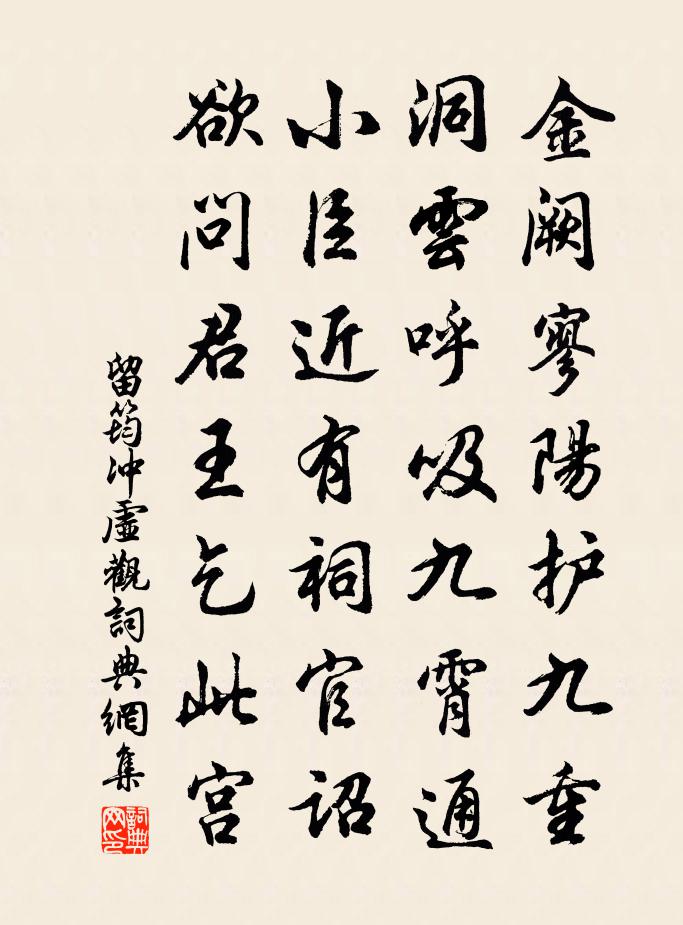 金阙寥陽护九重
洞雲呼吸九霄通
小臣近有祠官詔
欲問君王乞此宫
留筠冲虛觀詞典網集
詞典网印